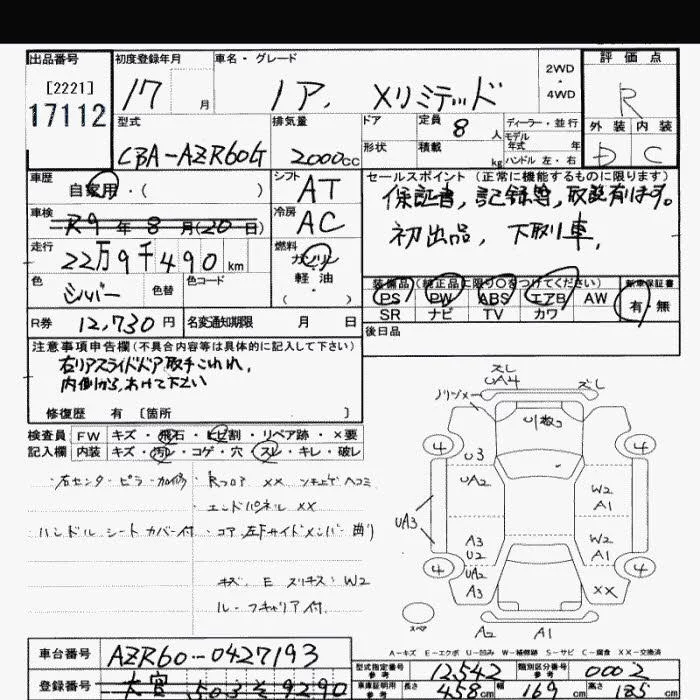 出品番号 初度登録年月 車名・グレード 2WD・4WD 評価点
[2221]
17112 17 月 ノア. Xリミテッド R
型式 排気量 ドア 定員 8 人 ディーラー・並行 外装 内装
CBA-AZR60G 2000cc 形状 積載 kg モデル年式 年 ハンドル 左・右 D C
車歴 自家用・( ) シフト AT セールスポイント (正常に機能するものに限ります)
保証書, 記録簿, 取説有ります。
車検 R9 年 8 月(20 日) 冷房 AC 初出品, 下取り車.
走行 22万9千490km 燃料 ガソリン
軽・油
( )
色 シルバー 色替 色コード 装備品(純正品に限り○をつけてください) 新車保証書
PS PW ABS エアB AW 有・無
SR ナビ TV カワ
R券 12,730円 名変通知期限 月 日 後日品
注意事項申告欄(不具合内容等は具体的に記入して下さい)
右リアスライドドア取手こわれ,
内側から, あけて下さい
修復歴 有 [箇所 ]
検査員 FW キズ・飛石・ヒビ割・リペア跡・×要
記入欄 内装 キズ・汚レ・コゲ・穴・スレ・キレ・破レ
・右センターピラー加修 Rフロア XX ヘコミ
・エンドパネル XX
ハンドル シートカバー付 ・コア, 左Fサイドメンバー 曲り
キズ. E スリキズ: W2
ルーフキャリア付.
スレ
UA4 スレ
4 4
U3
UA2 W2
A1
UA3
A3
U2 W2
A1
4 UA2 4
A3 XX
スペア A2 A1
A-キズ E-エクボ U-凹み W-補修跡 S-サビ C-腐食 XX-交換済
車台番号 AZR60-0427193 型式指定番号 参考 12542 類別区分番号 参考 0002
登録番号 大宮 503 そ 9290 車庫証明用 参考 長さ 458cm 幅 169cm 高さ 185cm